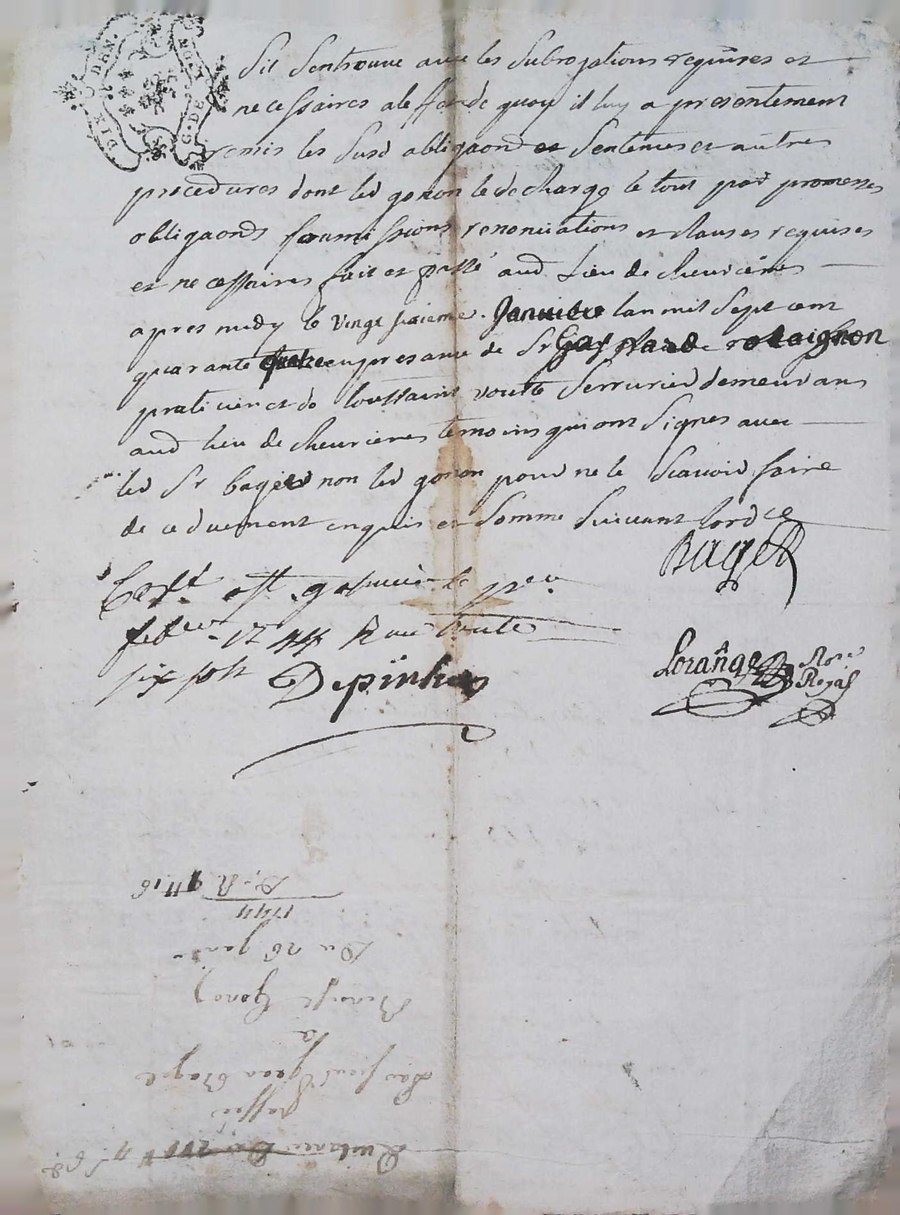 DIX DEN. G. DE LYON
Sil Sentrouve avec les Subrogations requises et
necessaires aleffande quoy il luy a presentement
remis les Susd obligaons et Sentences et autres
procedures dont led gonon le decharge le tout par promesses
obligaons soumissions renonciations et clauses requises
et necessaires fait et passé aud Lieu de chevrieres
apres midy le vingt sixieme Janvier lan mil Sept cent
quarante quatre en presance de Sr Gaspard de rotaignon
praticien et de toussaint voulte Serrurier demeurans
aud lieu de chevrieres temoins qui ont Signes avec
led Sr bager non led gonon pour ne le Scavoir faire
de ce duement enquis et Somme Suivant lord ce
BAGER
le per
fevrer 1744 Recu
six sols Depinhac
Lorange Nore
Royal
11 6
1744
Du 26 janv
Benoist Gono
a
Jean Bage
passée
Quittance